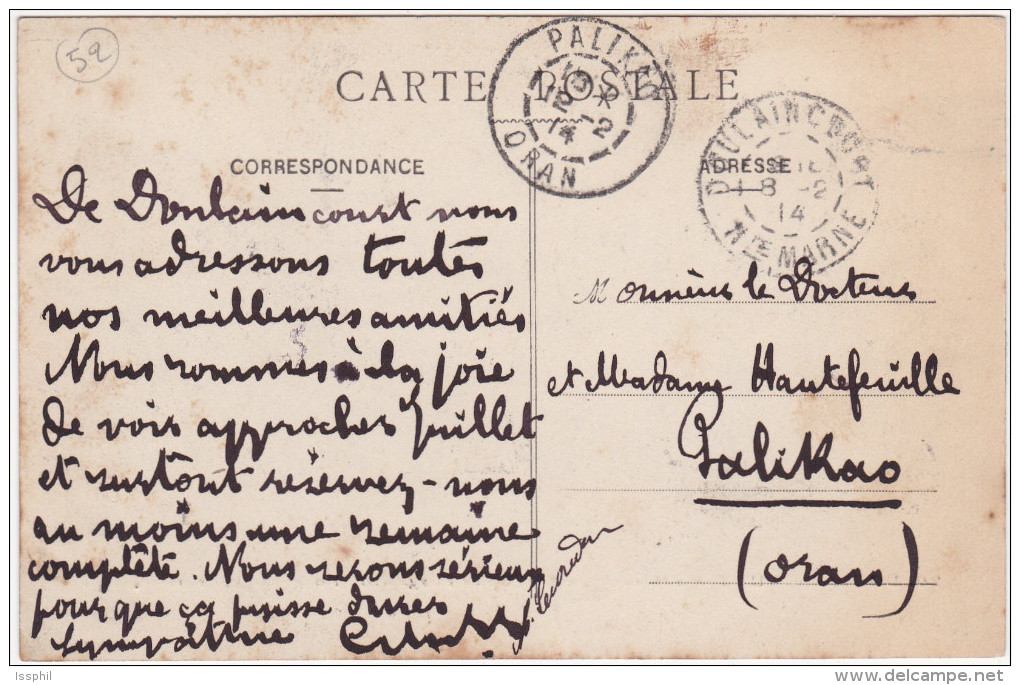 52
CARTE POSTALE
PALIKAO
14 -2
ORAN
CORRESPONDANCE
ADRESSE
DOULAINCOURT
8 -2
14
HTE MARNE
De Doulaincourt nous
vous adressons toutes
nos meilleures amitiés
Nous sommes à la joie
de voir approcher Juillet
et surtout réservez-nous
au moins une semaine
complète. Nous serons sérieux
pour que ça puisse durer
Sympathie
Monsieur le Docteur
et Madame Hautefeuille
Palikao
(Oran)
Issphil
delcampe.net